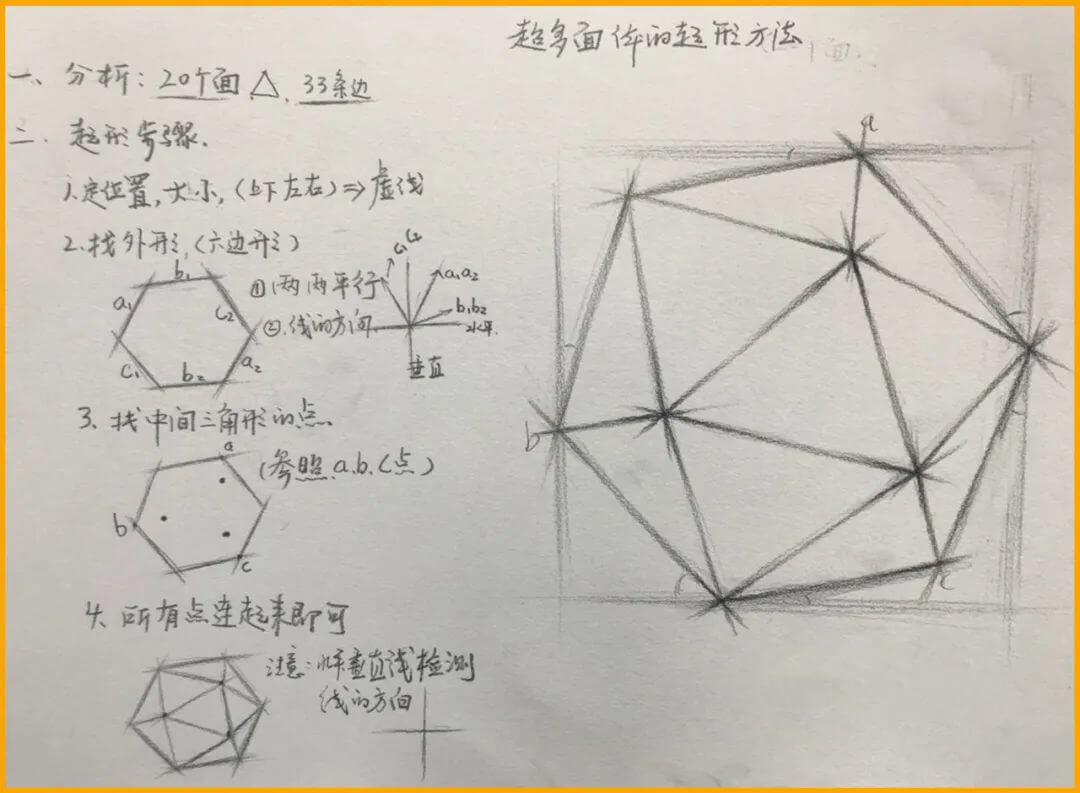 超多面体的起形方法
一、分析：20个面△、33条边
二、起形步骤.
1.定位置,大小,(上下左右)⇒虚线
2.找外形,(六边形)
b₁
a₁
c₂
c₁
b₂
a₂
①两两平行
②.线的方向
c₁c₂
a₁a₂
b₁b₂
水平.
垂直
3、找中间三角形的点.
(参照.a.b.c点)
a
b
c
4、所有点连起来即可
注意:水平垂直线检测
线的方向
a
b
c